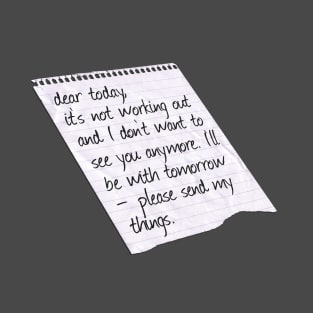 dear today,
it's not working out
and I don't want to
see you anymore. I'll
be with tomorrow
– please send my
things.